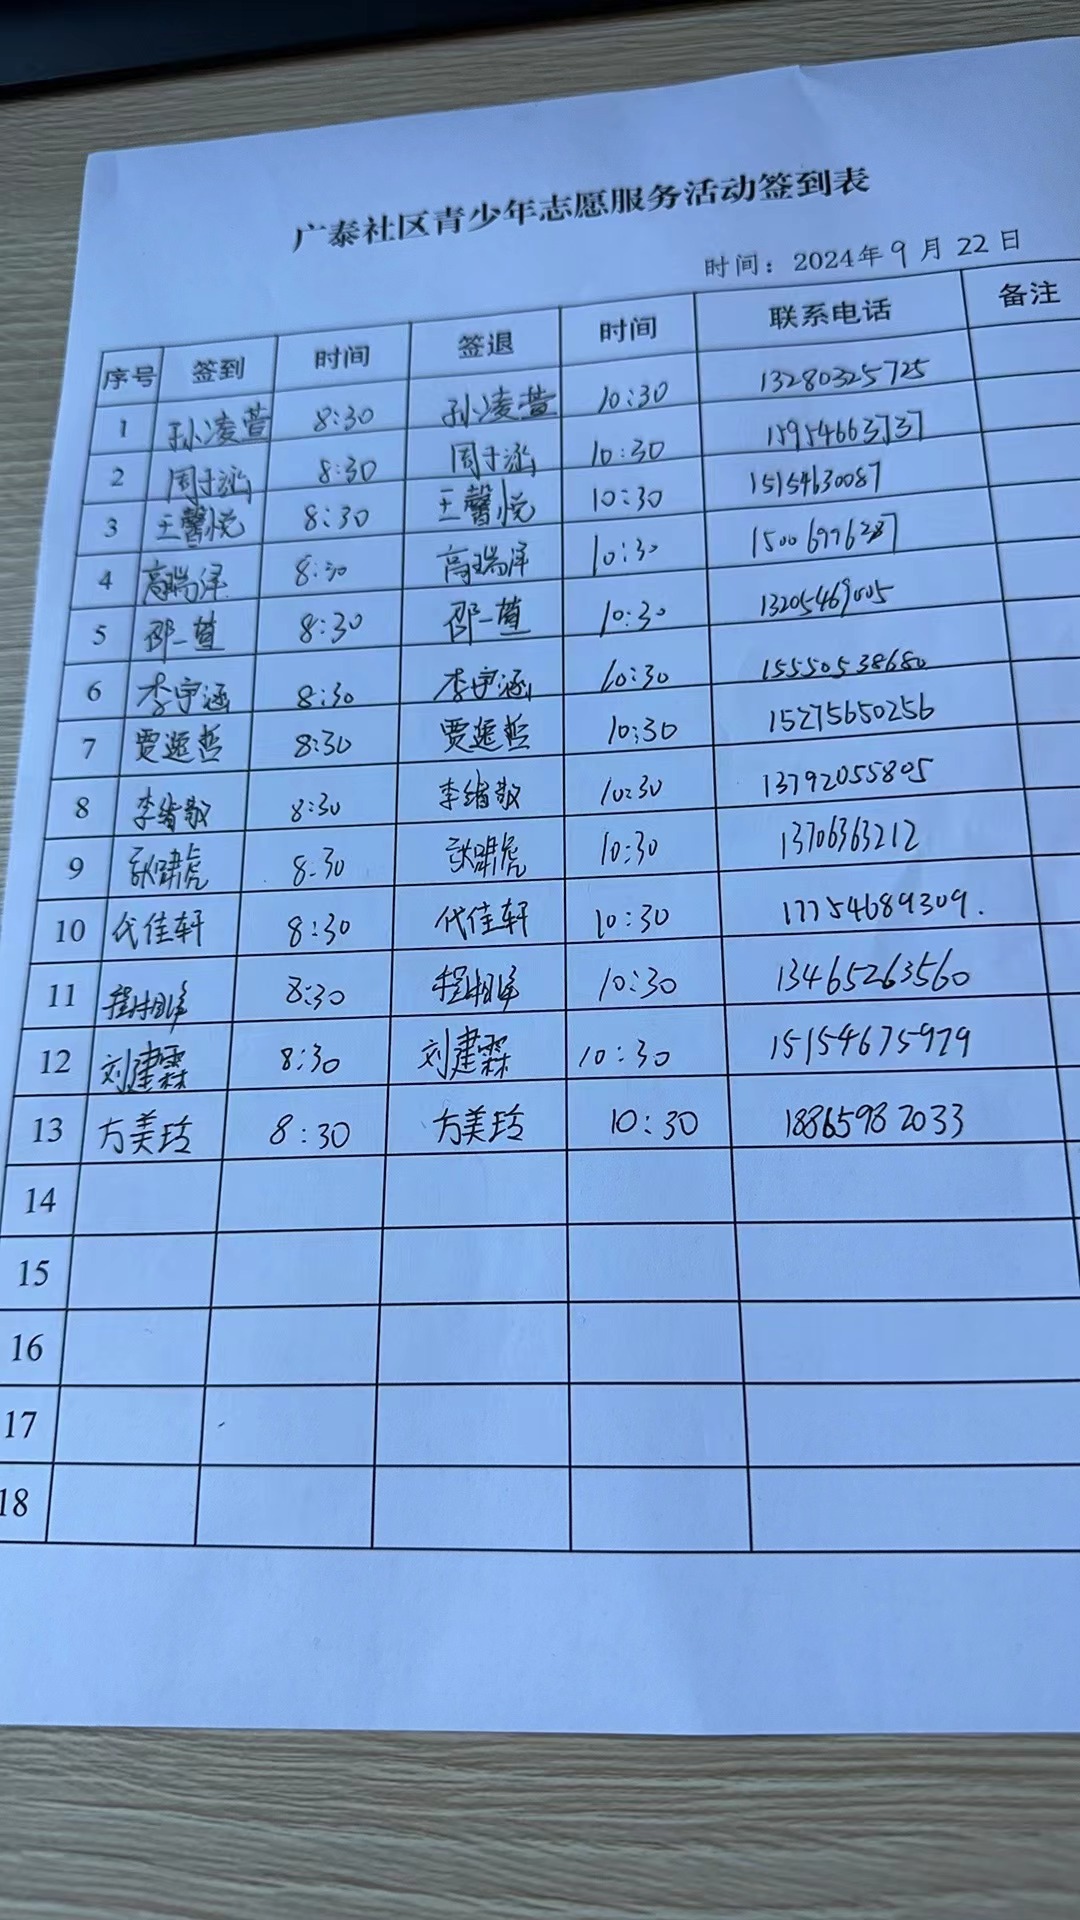 广泰社区青少年志愿服务活动签到表
时间：2024年9月22日
序号 签到 时间 签退 时间 联系电话 备注
1 孙凌萱 8:30 孙凌萱 10:30 13280325725
2 周于涵 8:30 周于涵 10:30 15954663737
3 王馨悦 8:30 王馨悦 10:30 15154630087
4 高瑞泽 8:30 高瑞泽 10:30
5 邵一萱 8:30 邵一萱 10:30 13205469005
6 李宇涵 8:30 李宇涵 10:30 15550538680
7 8:30 10:30 15275650256
8 8:30 10:30 13792055805
9 张啸虎 8:30 张啸虎 10:30 13706363212
10 代佳轩 8:30 代佳轩 10:30 17754689309.
11 8:30 10:30 13465263560
12 刘建霖 8:30 刘建霖 10:30 15154675929
13 方美玲 8:30 方美玲 10:30 18865982033
14
15
16
17
18